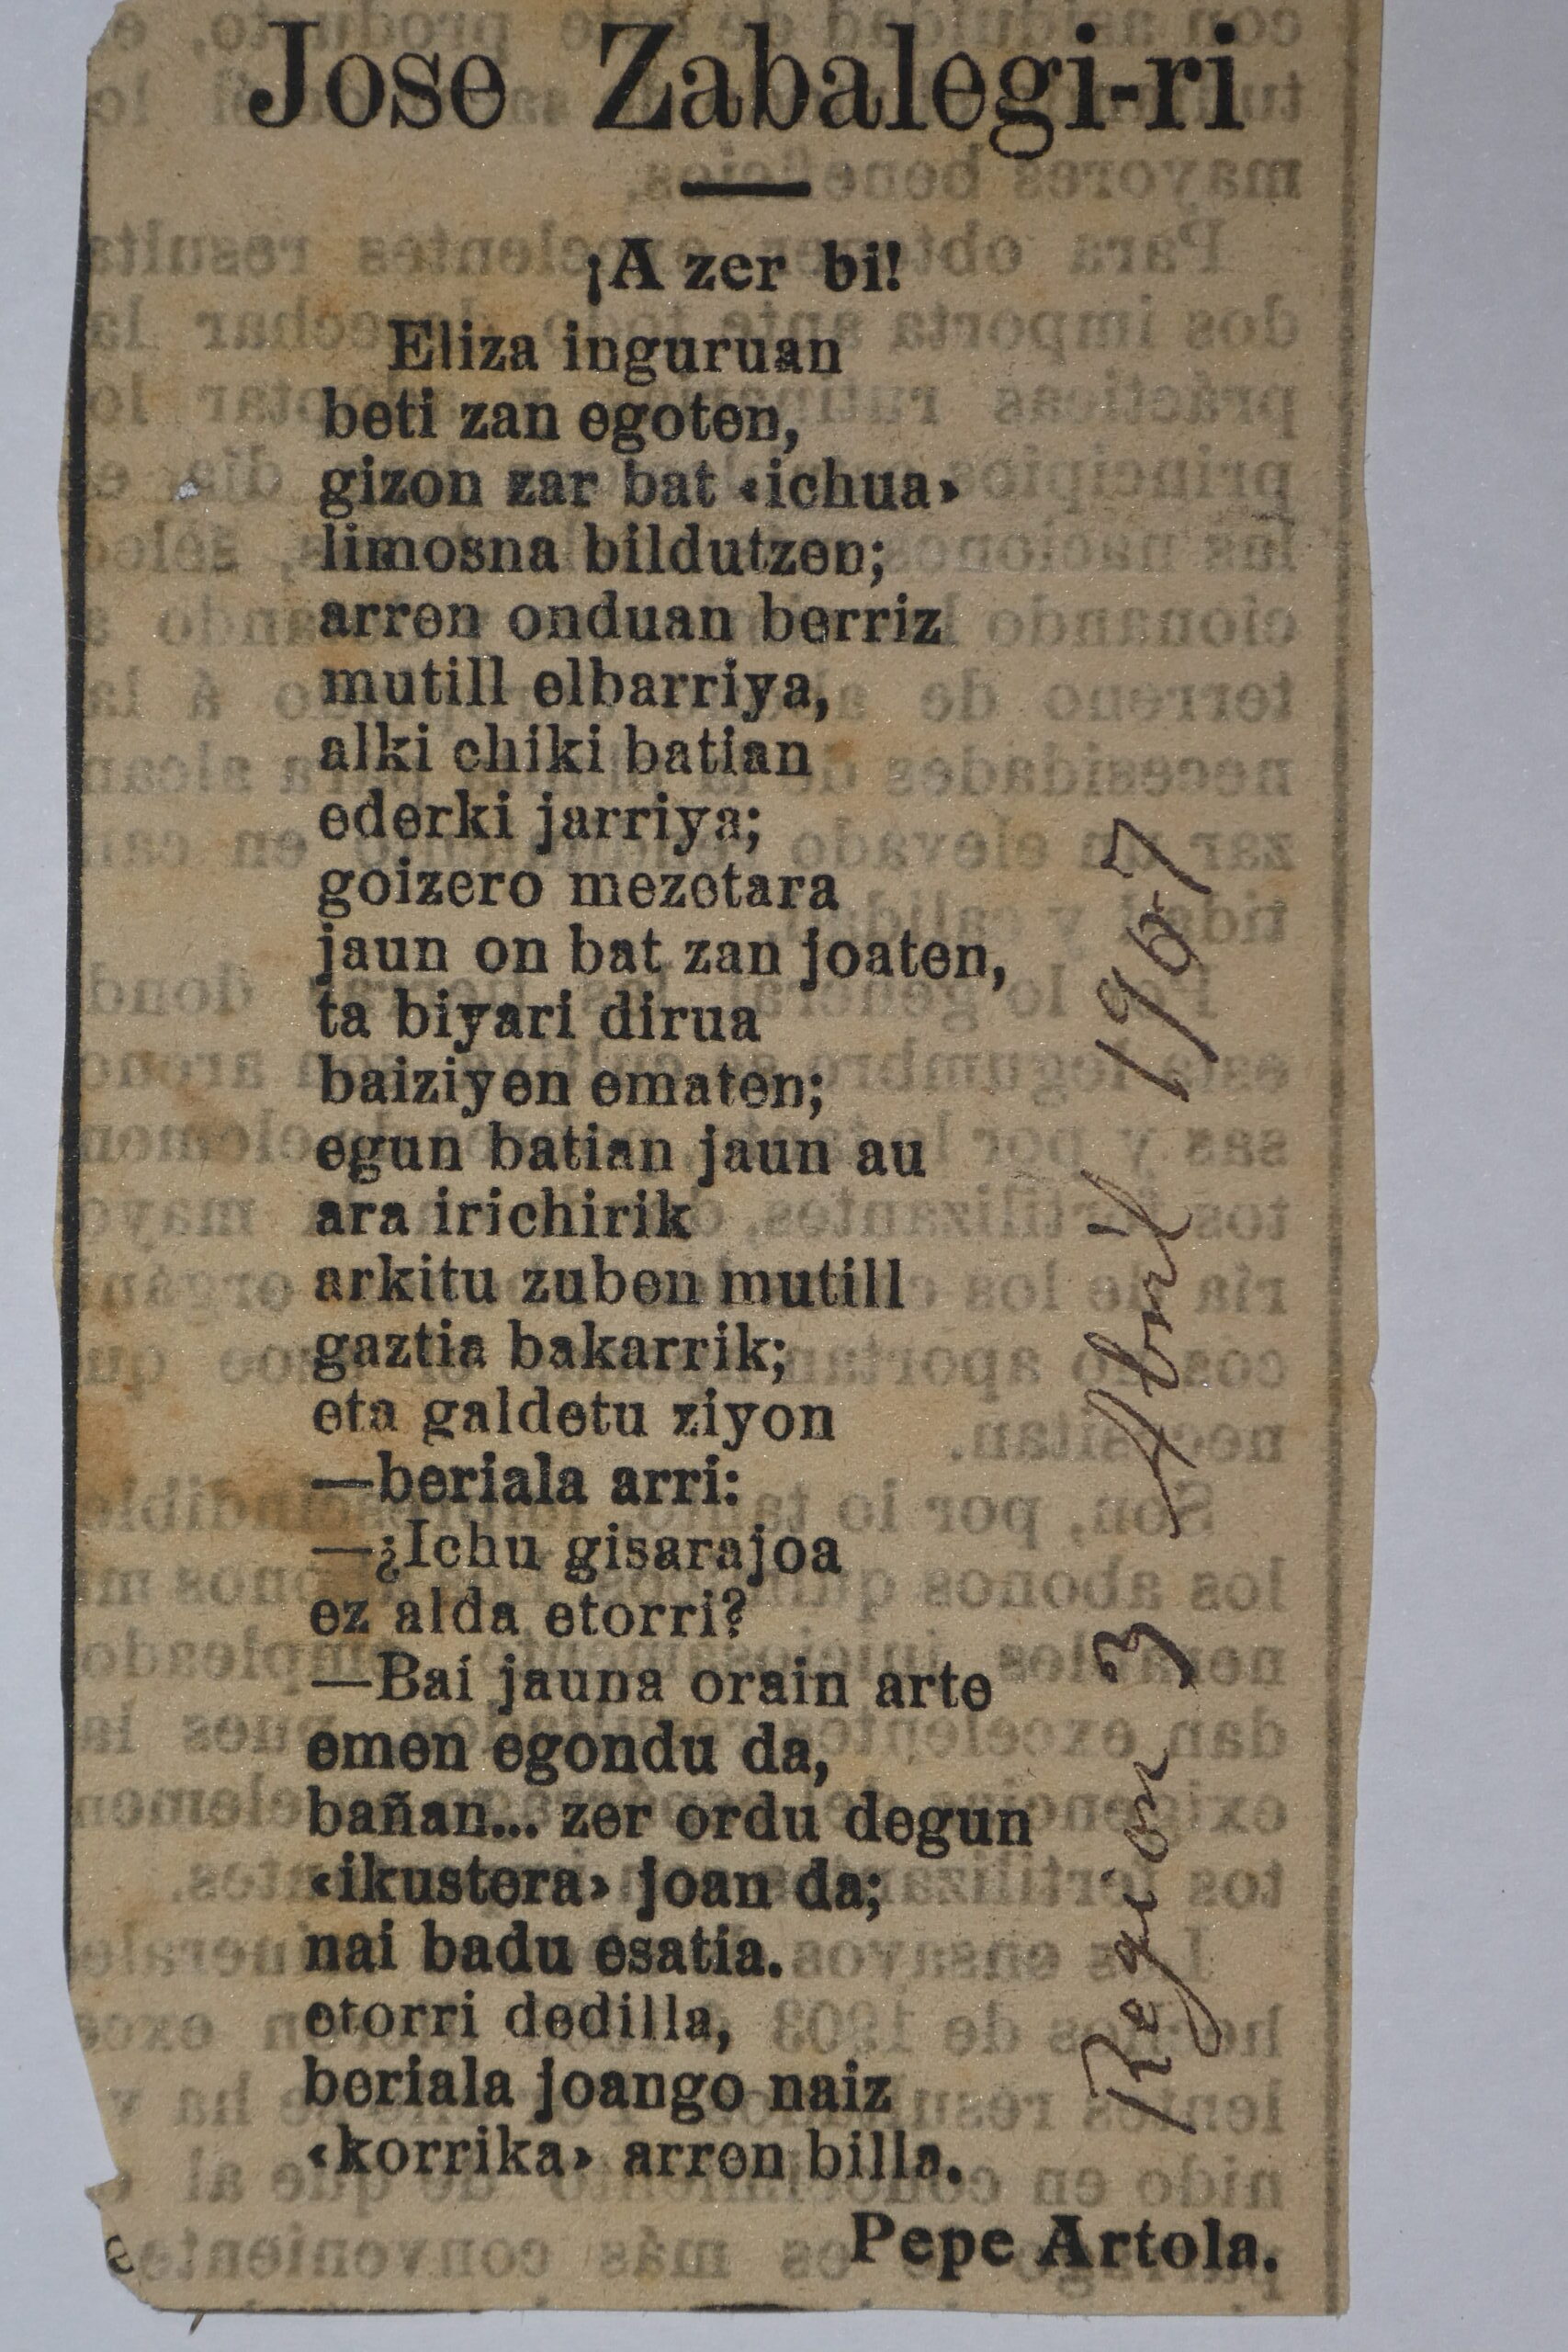 Jose Zabalegi-ri
¡A zer bi!
Eliza inguruan
beti zan egoten,
gizon zar bat «ichua»
limosna bildutzen;
arren onduan berriz
mutill elbarriya,
alki chiki batian
ederki jarriya;
goizero mezetara
jaun on bat zan joaten,
ta biyari dirua
baiziyen ematen;
egun batian jaun au
ara irichirik
arkitu zuben mutill
gaztia bakarrik;
eta galdetu ziyon
—beriala arri:
—¿Ichu gisarajoa
ez alda etorri?
—Bai jauna orain arte
emen egondu da,
bañan... zer ordu degun
«ikustera» joan da;
nai badu esatia.
etorri dedilla,
beriala joango naiz
«korrika» arren billa.
Pepe Artola.
Region 3 Abril 1907